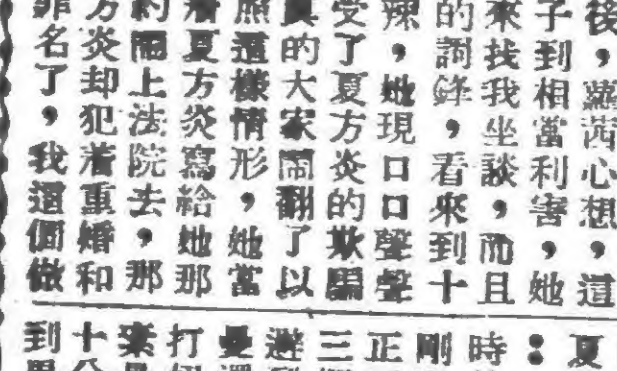 後，蘿茜心想，這
子到相當利害，她
來找我坐談，而且
的詞鋒，看來到十
辣，她現口口聲聲
受了夏方炎的欺騙
真的大家鬧翻了以
照這樣情形，她當
着夏方炎寫給她那
約鬧上法院去，那
方炎却犯着重婚和
罪名了，我這個做
夏
：
時
剛
正
三
避
曼
打
素
十
到